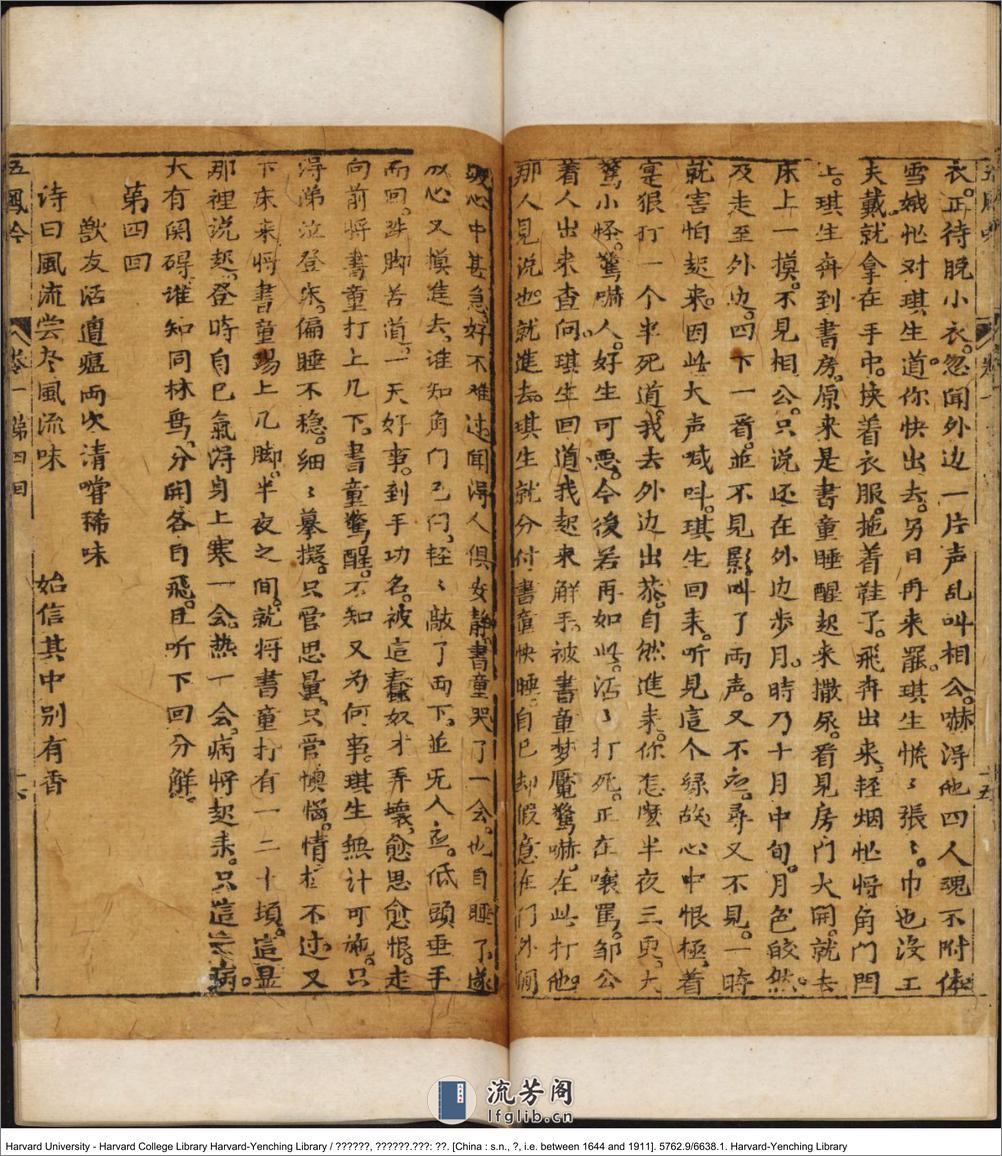 衣。正待脱小衣。忽闻外边一片声乱叫相公。嚇得他四人魂不附体
雪娥忙对琪生道你快出去。另日再来罢。琪生慌〻張〻巾也沒工
夫戴。就拿在手中。挟着衣服。拖着鞋子。飛奔出来。輕烟忙将角門閂
上。琪生奔到書房。原来是書童睡醒起来撒尿。看見房門大開。就去
床上一摸。不見相公。只说还在外边步月。時乃十月中旬。月色皎然。
及走至外边。四下一看。並不見影叫了两声。又不应。尋又不見。一時
就害怕起来。因此大声喊叫。琪生回来。听見這个缘故心中恨極。着
寔狠打一个半死道。我去外边出恭。自然進来。你怎麼半夜三更。大
驚小怪。驚嚇人。好生可惡。今後若再如此。活〻打死。正在嚷罵。邹公
着人出来查问。琪生回道我起来解手。被書童梦魘驚嚇。在此打他。
那人見说也就進去。琪生就分付書童快睡。自己却假意在门外
心中甚急。好不难过闻得人俱安静。書童哭了一会。也自睡了。遂
放心又摸進去。谁知角门已闩。轻〻敲了两下。並无人应。低頭垂手
而回。跌脚苦道。一天好事。到手功名。被這蠢奴才弄壞。愈思愈恨。走
向前将書童打上几下。書童驚醒。不知又为何事。琪生無计可施。只
得弟泣登床。偏睡不稳。细〻摹擬。只管思量。只管懊惱。情極不过又
下床来将書童踢上几脚。半夜之间。就将書童打有一二十頓。這显
那裡说起。登時自己氣得身上寒一会。热一会。病将起来。只這
大有関碍。谁知同林鸟。分開各自飛。且听下回分解。
第四回
獸友活遭瘟两次清嚐稀味
诗曰風流尝尽風流味
始信其中别有香
五鳳吟
卷一
第四回
流芳阁
lfglib.cn
Harvard University - Harvard College Library Harvard-Yenching Library / ??????, ??????.???: ??. [China : s.n., ?, i.e. between 1644 and 1911]. 5762.9/6638.1. Harvard-Yenching Library